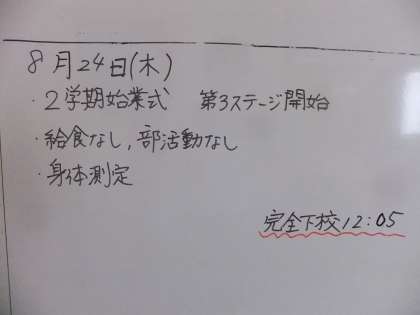 8月24日(木)
・2学期始業式　第3ステージ開始
・給食なし,部活動なし
・身体測定
完全下校12:05